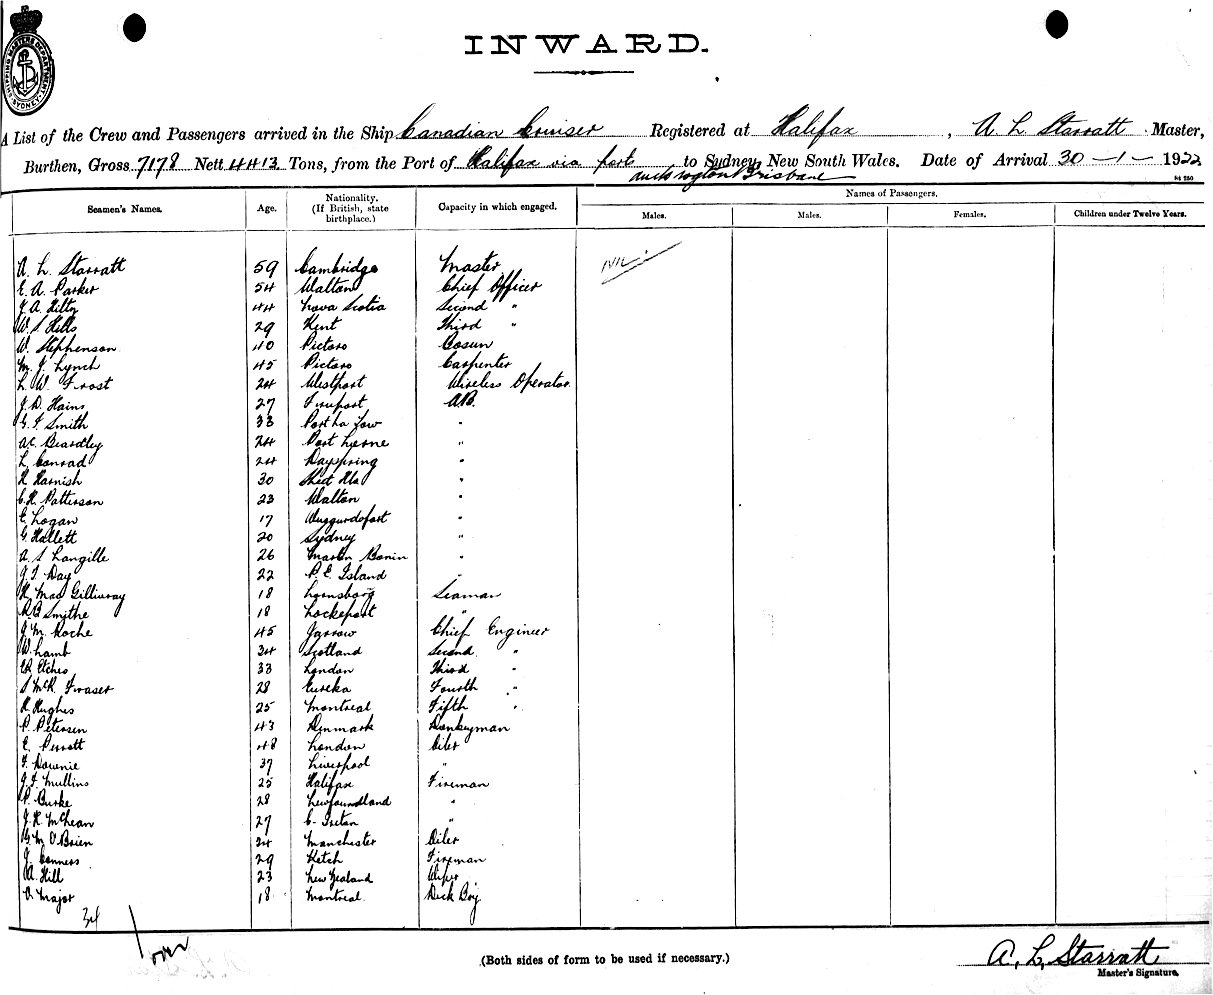 SHIPPING MASTERS DEPARTMENT SYDNEY
INWARD.
A List of the Crew and Passengers arrived in the Ship Canadian Cruiser Registered at Halifax, A L Starratt Master,
Burthen, Gross 7178 Nett 4413 Tons, from the Port of Halifax via ports, to Sydney, New South Wales. Date of Arrival 30-1-1922
Brisbane
Seamen's Names. Age. Nationality. (If British, state birthplace.) Capacity in which engaged. Names of Passengers.
Males. Males. Females. Children under Twelve Years.
A. L. Starratt 59 Cambridge Master Nil
E. A. Parker 54 Walton Chief Officer
J. A. Hilty 44 Nova Scotia Second "
W. S. Hills 29 Kent Third "
W. Stephenson 40 Pictou Bosun
M. J. Lynch 45 Pictou Carpenter
L. W. Frost 24 Westport Wireless Operator
J. D. Hains 27 Freeport A.B.
G. F. Smith 33 Port La Tow "
A.C. Beardley 24 Port Lorne "
L. Conrad 24 Dayspring "
R Harnish 30 "
C. H. Patterson 23 Walton "
E. Logan 17 "
G. Hallett 20 Sydney "
A. S Langille 26 "
J. F. Day 22 P. E. Island "
R. Mac Gillivray 18 Seaman
R. B Smithe 18 Lockeport "
J. M. Roche 45 Jarrow Chief Engineer
W. Lamb 34 Scotland Second "
Etches 33 London Third "
S McK. Fraser 28 Eureka Fourth "
R Hughes 25 Montreal Fifth "
P. Petersen 43 Denmark Donkeyman
E. Perrott 48 London Oiler
F. Downie 37 Liverpool "
J. F. Mullins 25 Halifax Fireman
P. Burke 28 Newfoundland "
J. R. McLean 27 C. Breton "
G. M. O'Brien 24 Manchester Oiler
J. Conners 29 Ketch Fireman
A. Hill 23 New Zealand Wiper
A Major 18 Montreal Deck Boy
34
over
(Both sides of form to be used if necessary.)
A. L. Starratt
Master's Signature.